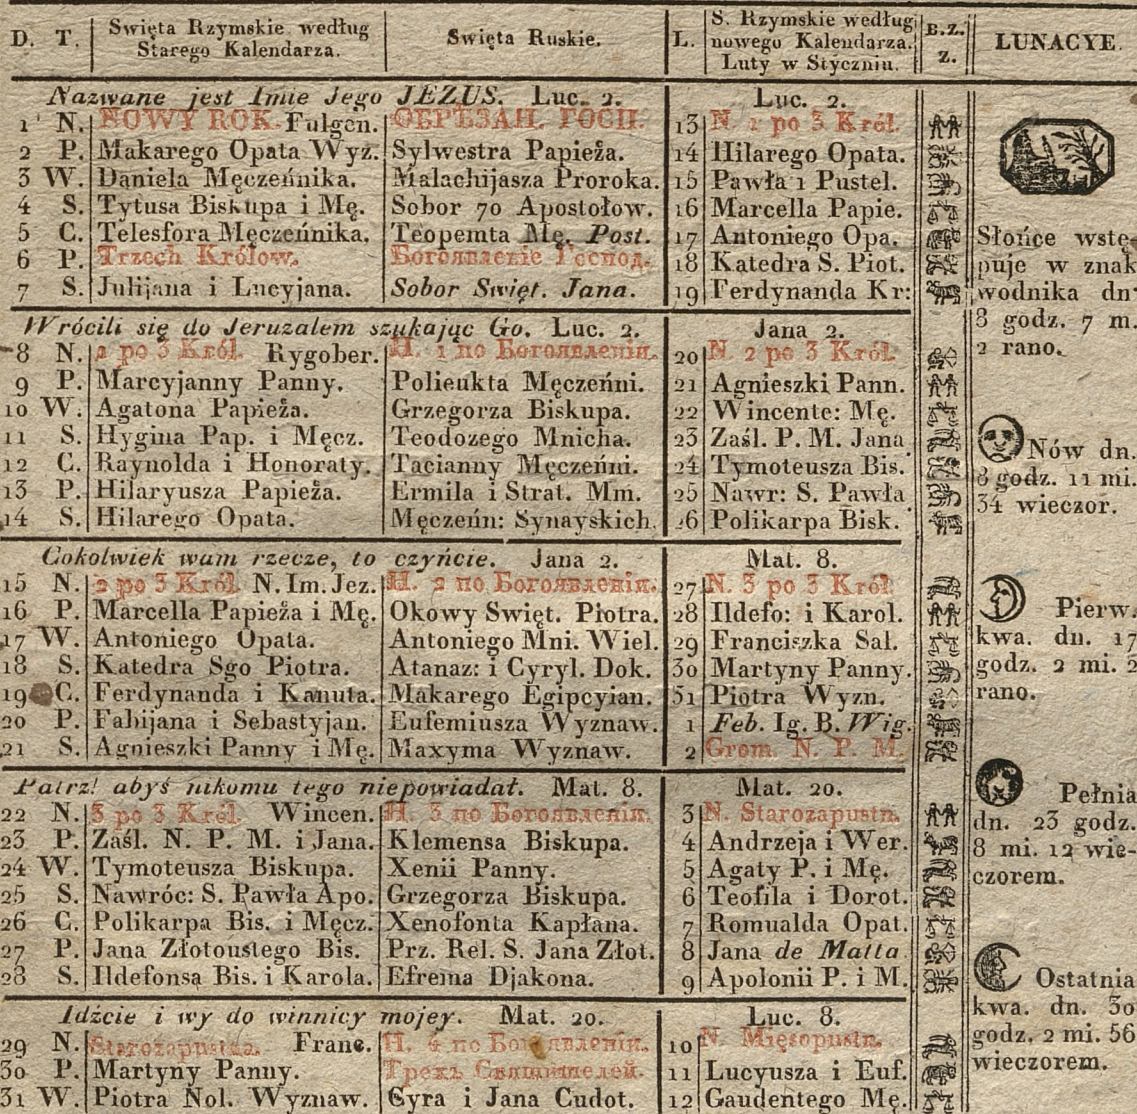 D. T. Swięta Rzymskie według Starego Kalendarza. Swięta Ruskie. L. S. Rzymskie według nowego Kalendarza. Luty w Styczniu. B.Z. z. LUNACYE.
Nazwane jest Imie Jego JEZUS. Luc. 2. Luc. 2.
1 N. NOWY ROK. Fulgen. ОБРѢЗАН. ГОСП. 13 N. 1 po 3 Król.
2 P. Makarego Opata Wyz. Sylwestra Papieża. 14 Hilarego Opata.
3 W. Daniela Męczeńnika. Malachijasza Proroka. 15 Pawła 1 Pustel.
4 S. Tytusa Biskupa i Mę. Sobor 70 Apostołow. 16 Marcella Papie.
5 C. Telesfora Męczeńnika. Teopemta Mę. Post. 17 Antoniego Opa.
6 P. Trzech Królow. Богоявленіе Господ. 18 Katedra S. Piot.
7 S. Julijana i Lucyjana. Sobor Swięt. Jana. 19 Ferdynanda Kr:
Wrócili się do Jeruzalem szukając Go. Luc. 2. Jana 2.
8 N. 1 po 3 Król. Rygober. Н. 1 по Богоявленіи. 20 N. 2 po 3 Król.
9 P. Marcyjanny Panny. Polieukta Męczeńni. 21 Agnieszki Pann.
10 W. Agatona Papieża. Grzegorza Biskupa. 22 Wincente: Mę.
11 S. Hygina Pap. i Męcz. Teodozego Mnicha. 23 Zaśl. P. M. Jana
12 C. Raynolda i Honoraty. Tacianny Męczeńni. 24 Tymoteusza Bis.
13 P. Hilaryusza Papieża. Ermila i Strat. Mm. 25 Nawr: S. Pawła
14 S. Hilarego Opata. Męczeńn: Synayskich. 26 Polikarpa Bisk.
Cokolwiek wam rzecze, to czyńcie. Jana 2. Mat. 8.
15 N. 2 po 3 Król. N. Im. Jez. Н. 2 по Богоявленіи. 27 N. 3 po 3 Król.
16 P. Marcella Papieża i Mę. Okowy Swięt. Piotra. 28 Ildefo: i Karol.
17 W. Antoniego Opata. Antoniego Mni. Wiel. 29 Franciszka Sal.
18 S. Katedra Sgo Piotra. Atanaz: i Cyryl. Dok. 30 Martyny Panny.
19 C. Ferdynanda i Kanuta. Makarego Egipcyian. 31 Piotra Wyzn.
20 P. Fabijana i Sebastyjan. Eufemiusza Wyznaw. 1 Feb. Ig. B. Wig.
21 S. Agnieszki Panny i Mę. Maxyma Wyznaw. 2 Grom. N. P. M.
Patrz! abyś nikomu tego niepowiadał. Mat. 8. Mat. 20.
22 N. 3 po 3 Król. Wincen. Н. 3 по Богоявленіи. 3 N. Starozapustn.
23 P. Zaśl. N. P. M. i Jana. Klemensa Biskupa. 4 Andrzeja i Wer.
24 W. Tymoteusza Biskupa. Xenii Panny. 5 Agaty P. i Mę.
25 S. Nawróc: S. Pawła Apo. Grzegorza Biskupa. 6 Teofila i Dorot.
26 C. Polikarpa Bis. i Męcz. Xenofonta Kapłana. 7 Romualda Opat.
27 P. Jana Złotoustego Bis. Prz. Rel. S. Jana Złot. 8 Jana de Matta
28 S. Ildefonsa Bis. i Karola. Efrema Djakona. 9 Apolonii P. i M.
Idźcie i wy do winnicy mojey. Mat. 20. Luc. 8.
29 N. Starozapustna. Franc. Н. 4 по Богоявленіи. 10 N. Mięsopustn.
30 P. Martyny Panny. Трехъ Святителей. 11 Lucyusza i Euf.
31 W. Piotra Nol. Wyznaw. Cyra i Jana Cudot. 12 Gaudentego Mę.
Słońce wstę-
puje w znak
wodnika dn.
8 godz. 7 m.
2 rano.
Nów dn.
8 godz. 11 mi.
34 wieczor.
Pierw.
kwa. dn. 17
godz. 2 mi. 2
rano.
Pełnia
dn. 23 godz.
8 mi. 12 wie-
czorem.
Ostatnia
kwa. dn. 30
godz. 2 mi. 56
wieczorem.